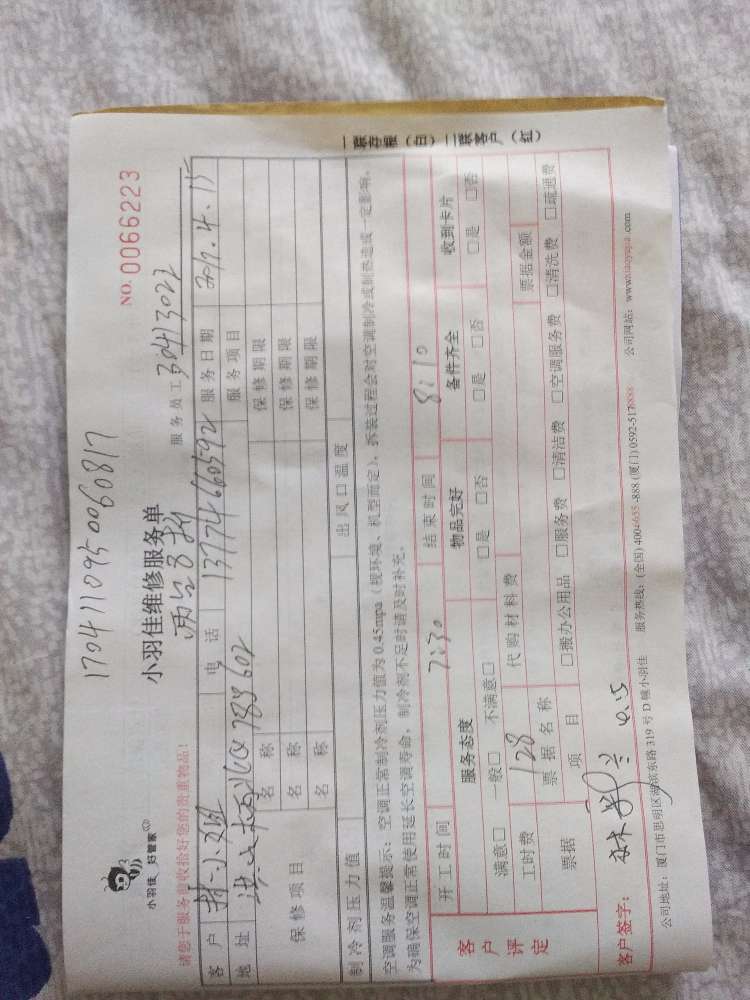 1704110950060817
小羽佳 好管家
小羽佳维修服务单
NO. 0066223
请您于服务前收拾好您的贵重物品！
服务员工 30413022
客户 林小姐 电话 13774660592 服务日期 2017.4.15
地址 602 服务项目
保修项目 名称 保修期限
名称 保修期限
名称 保修期限
制冷剂压力值 出风口温度
空调服务温馨提示：空调正常制冷剂压力值为0.45mpa（视环境、机型而定），拆装过程会对空调制冷或制热造成一定影响，
为确保空调正常使用延长空调寿命，制冷剂不足时请及时补充。
客户评定 开工时间 7:30 结束时间 8:10
服务态度 物品完好 备件齐全 收到卡片
满意□ 一般□ 不满意□ □是 □否 □是 □否 □是 □否
工时费 128 代购材料费
票据 票据名称 票据金额
项目 □搬办公用品 □服务费 □清洁费 □空调服务费 □清洗费 □疏通费
客户签字： 4.15
公司地址：厦门市思明区湖滨东路319号D幢小羽佳 服务热线：(全国) 4004655-888 (厦门) 0592-5178888 公司网站：www.xiaoyujia.com
一联存根（白）二联客户（红）